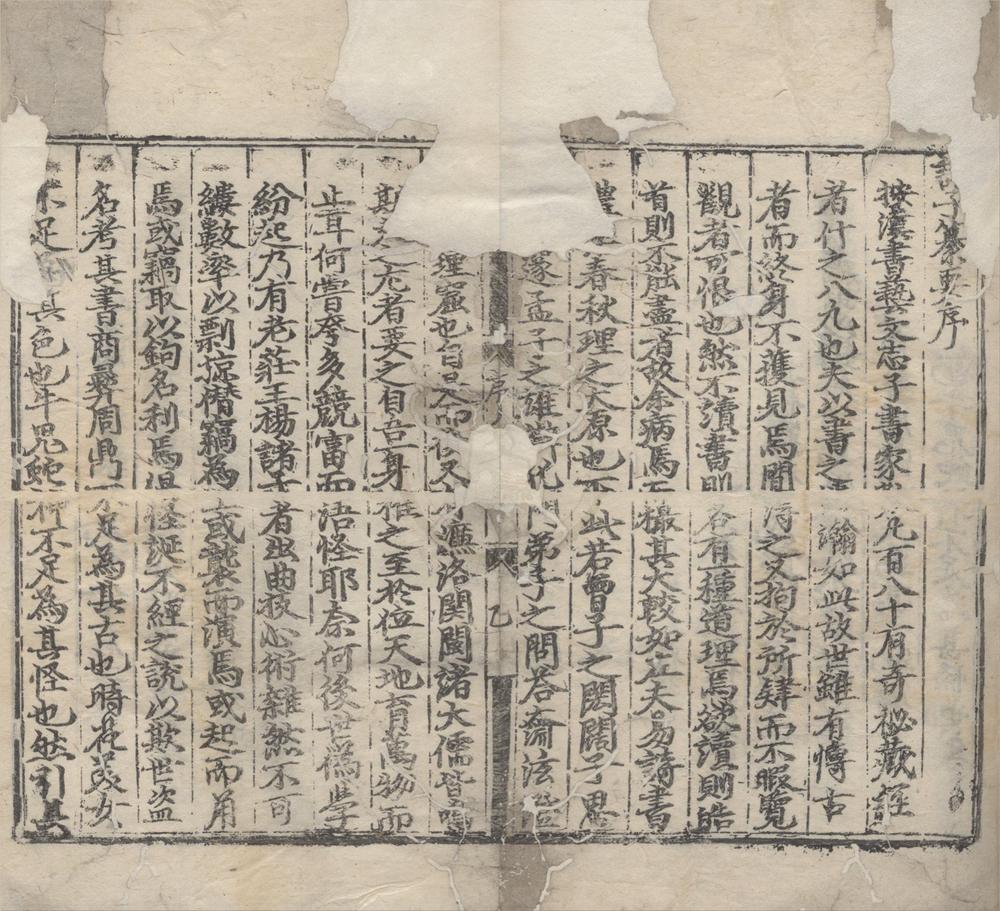 子纂要序
按漢書藝文志子書家凡百八十有奇秘藏經
者什之八九也夫以書之瀚如此故世雖有慱古
者而終身不獲見焉間得之又拘於所肄而不暇覽
觀者可恨也然不讀書則各有一種道理焉欲讀則皓
首則不能盡首故余病焉撮其大較如左夫易詩書
禮春秋理之大原也此若曾子之闳闊子思
孟子之雄當代門弟子之問答
窟也濂洛関閩諸大儒皆
之尤者要之自吾身推之至於位天地育萬物而
止耳何嘗夸多競富而語怪耶奈何後世偽學
紛起乃有老莊王楊諸者出曲投心術雜然不可
縷數率以剽掠僣竊為或襲而演焉或起而角
焉或竊取以鉤名利焉怪誕不經之說以欺世盗
名考其書商彛周鼎不足為其古也時花美女
不足其色也牛鬼蛇神不足為其怪也然引其
序
乙